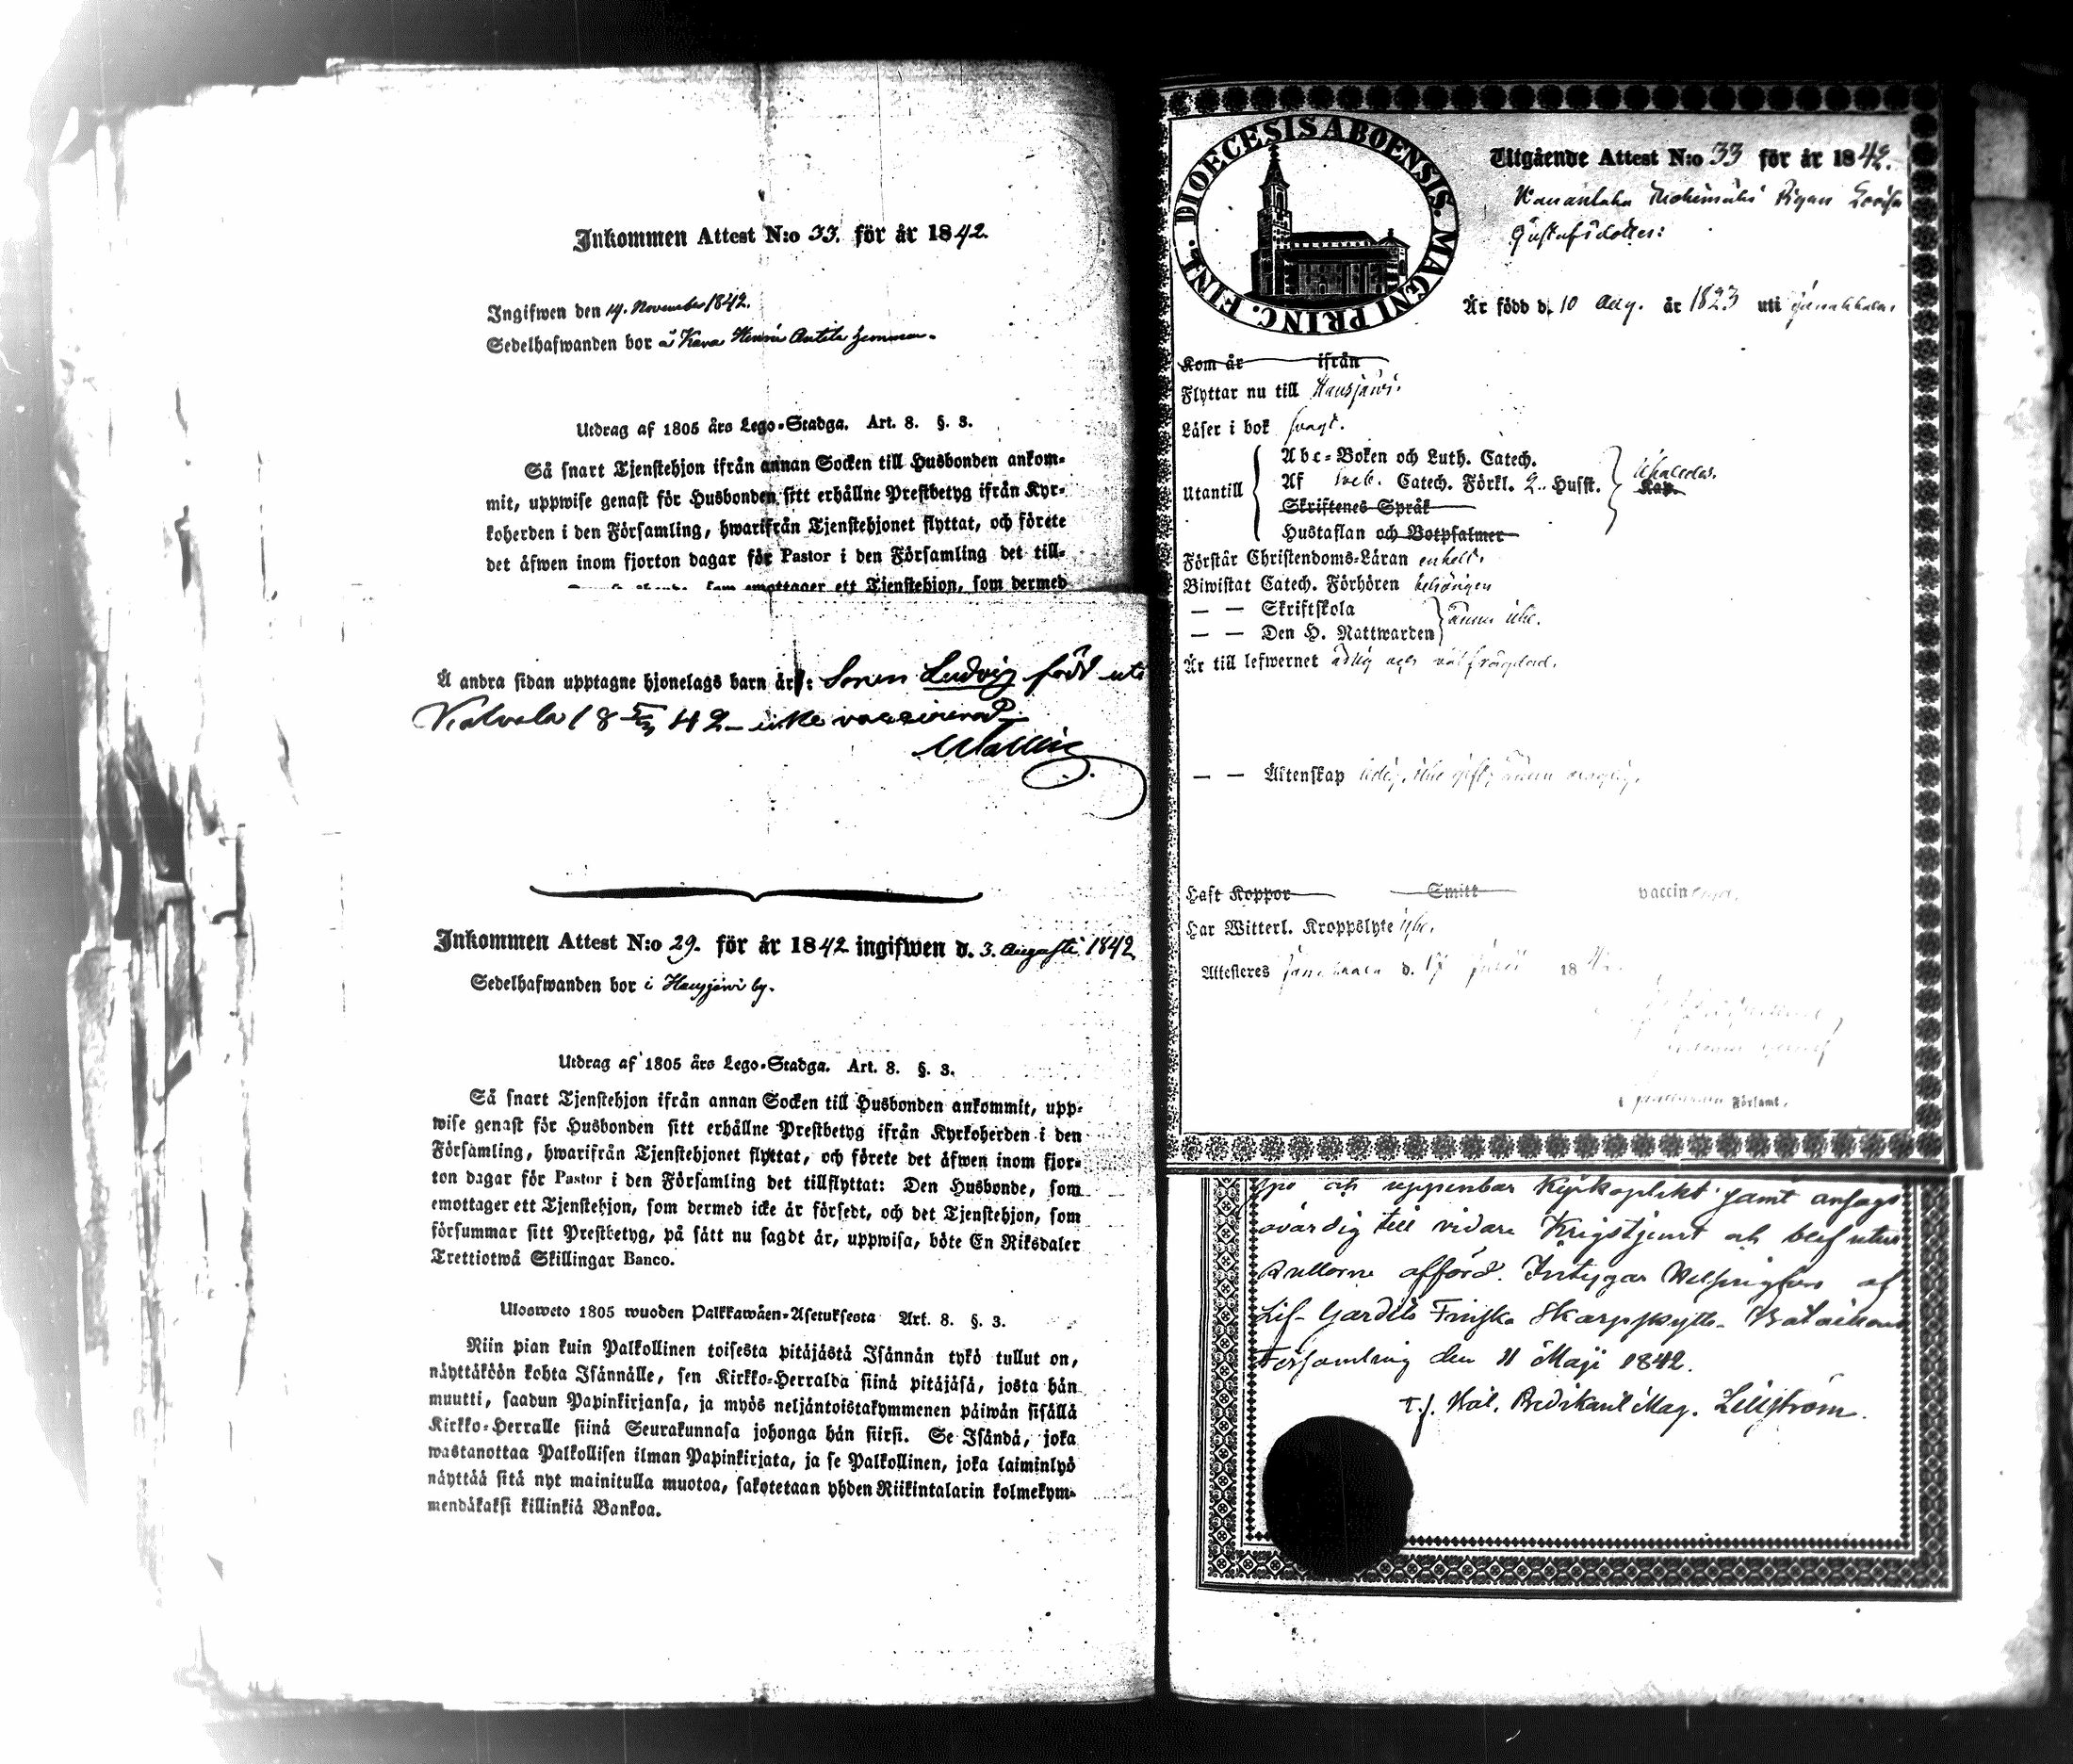 Inkommen Attest N:o 33. för år 1842.
Ingifwen den 14. November 1842.
Sedelhafwanden bor å Kara Henrir Antila hemman.
Utdrag af 1805 års Lego-Stadga. Art. 8. §. 3.
Så snart Tjenstehjon ifrån annan Socken till Husbonden ankom-
mit, uppwise genast för Husbonden sitt erhållne Prestbetyg ifrån Kyr-
koherden i den Församling, hwarifrån Tjenstehjonet flyttat, och förete
det äfwen inom fjorton dagar för Pastor i den Församling det till-
emottager ett Tjenstehjon, som dermed
Å andra sidan upptagne hjonelags barn är: Sonen Ludvig född uti
Kalvola 18 42 icke vaccinerad
Wallin
Inkommen Attest N:o 29. för år 1842 ingifwen d. 3. Augusti 1842
Sedelhafwanden bor i Hausjärvi by.
Utdrag af 1805 års Lego-Stadga. Art. 8. §. 3.
Så snart Tjenstehjon ifrån annan Socken till Husbonden ankommit, upp-
wise genast för Husbonden sitt erhållne Prestbetyg ifrån Kyrkoherden i den
Församling, hwarifrån Tjenstehjonet flyttat, och förete det äfwen inom fjor-
ton dagar för Pastor i den Församling det tillflyttat: Den Husbonde, som
emottager ett Tjenstehjon, som dermed icke är försedt, och det Tjenstehjon, som
försummar sitt Prestbetyg, på sätt nu sagdt är, uppwisa, böte En Riksdaler
Trettiotwå Skillingar Banco.
Ulosweto 1805 wuoden Palkkawäen-Asetuksesta Art. 8. §. 3.
Niin pian kuin Palkollinen toisesta pitäjästä Isännän tykö tullut on,
näyttäköön kohta Isännälle, sen Kirkko-Herralda siinä pitäjäsä, josta hän
muutti, saadun Papinkirjansa, ja myös neljäntoistakymmenen päiwän sisällä
Kirkko-Herralle siinä Seurakunnasa johonga hän siirsi. Se Isändä, joka
wastanottaa Palkollisen ilman Papinkirjata, ja se Palkollinen, joka laiminlyö
näyttää sitä nyt mainitulla muotoa, sakotetaan yhden Riikintalarin kolmekym-
mendäkaksi killinkiä Bankoa.
DIOECESIS ABOENSIS. MAGNI PRINC. FINL.
Utgående Attest N:o 33 för år 1842.
Pigan Lovisa
Gustafsdotter:
Är född d. 10 Aug. år 1823 uti Janakkala.
Kom år ifrån
Flyttar nu till Hausjärvi.
Läser i bok svagt.
Utantill
Abc-Boken och Luth. Catech.
Af Sveb. Catech. Förkl. 2. Husst.
Skriftenes Språk
Kap.
Hustaflan och Botpsalmer
Förstår Christendoms-Läran enkelt.
Biwistat Catech. Förhören behörigen
— — Skriftskola
— — Den H. Nattwarden
ännu icke.
Är till lefwernet ärlig och välfrägdad.
— — Äktenskap ledig, icke gift,
Haft Koppor Smitt vaccinerad.
Har Witterl. Kroppslyte icke.
Attesteres Janakkala d. 17 Julii 1842.
i Janakkala Församl.
och uppenbar Kyrkoplikt samt ansags
ovärdig till vidare Krigstjenst och blef utur
Rullorne afförd. Intygar Helsingfors af
Lif-Gardets Finska Skarpskytte-Bataillons
Församling den 11 Maji 1842.
T.f. Bat. Predikant Mag. Lillström.